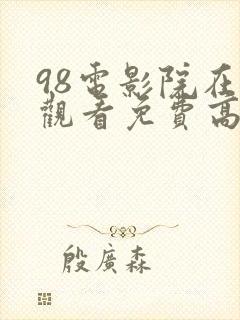 98電影院在
觀看免費高
殷廣森